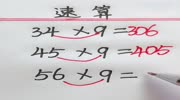 速算
34×9=306
45×9=405
56×9=